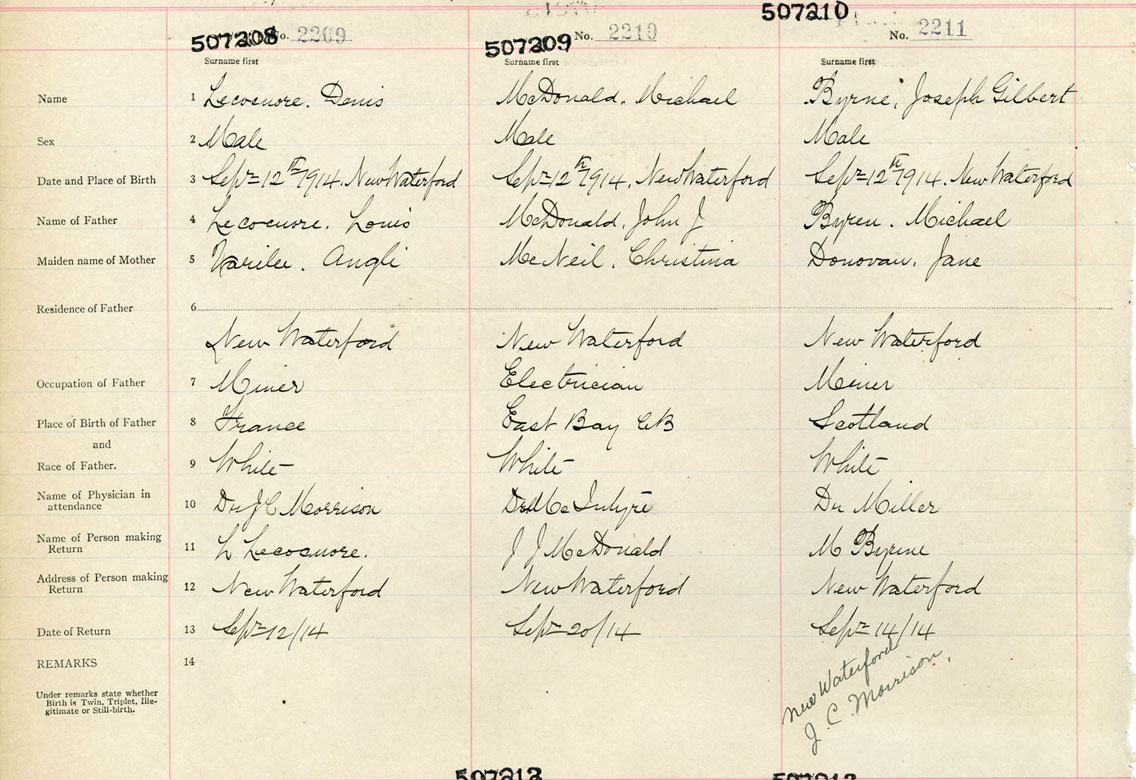 507208 No. 2209 507209 No. 2210 507210 No. 2211
Surname first Surname first Surname first
Name 1 Lecocnore. Denis McDonald. Michael Byrne, Joseph Gilbert
Sex 2 Male Male Male
Date and Place of Birth 3 Sept 12th 1914. New Waterford Sept 12th 1914. New Waterford Sept 12th 1914. New Waterford
Name of Father 4 Lecocnore. Louis McDonald, John J Byren. Michael
Maiden name of Mother 5 Angli McNeil. Christina Donovan, Jane
Residence of Father 6
New Waterford New Waterford New Waterford
Occupation of Father 7 Miner Electrician Miner
Place of Birth of Father 8 France East Bay CB Scotland
and
Race of Father. 9 White White White
Name of Physician in
attendance 10 Dr J C Morrison Dr McIntyre Dr Miller
Name of Person making
Return 11 L Lecosnore. J J McDonald M Byrne
Address of Person making
Return 12 New Waterford New Waterford New Waterford
Date of Return 13 Sept 12/14 Sept 20/14 Sept 14/14
REMARKS 14
Under remarks state whether
Birth is Twin, Triplet, Ille-
gitimate or Still-birth.
New Waterford
J. C. Morrison,